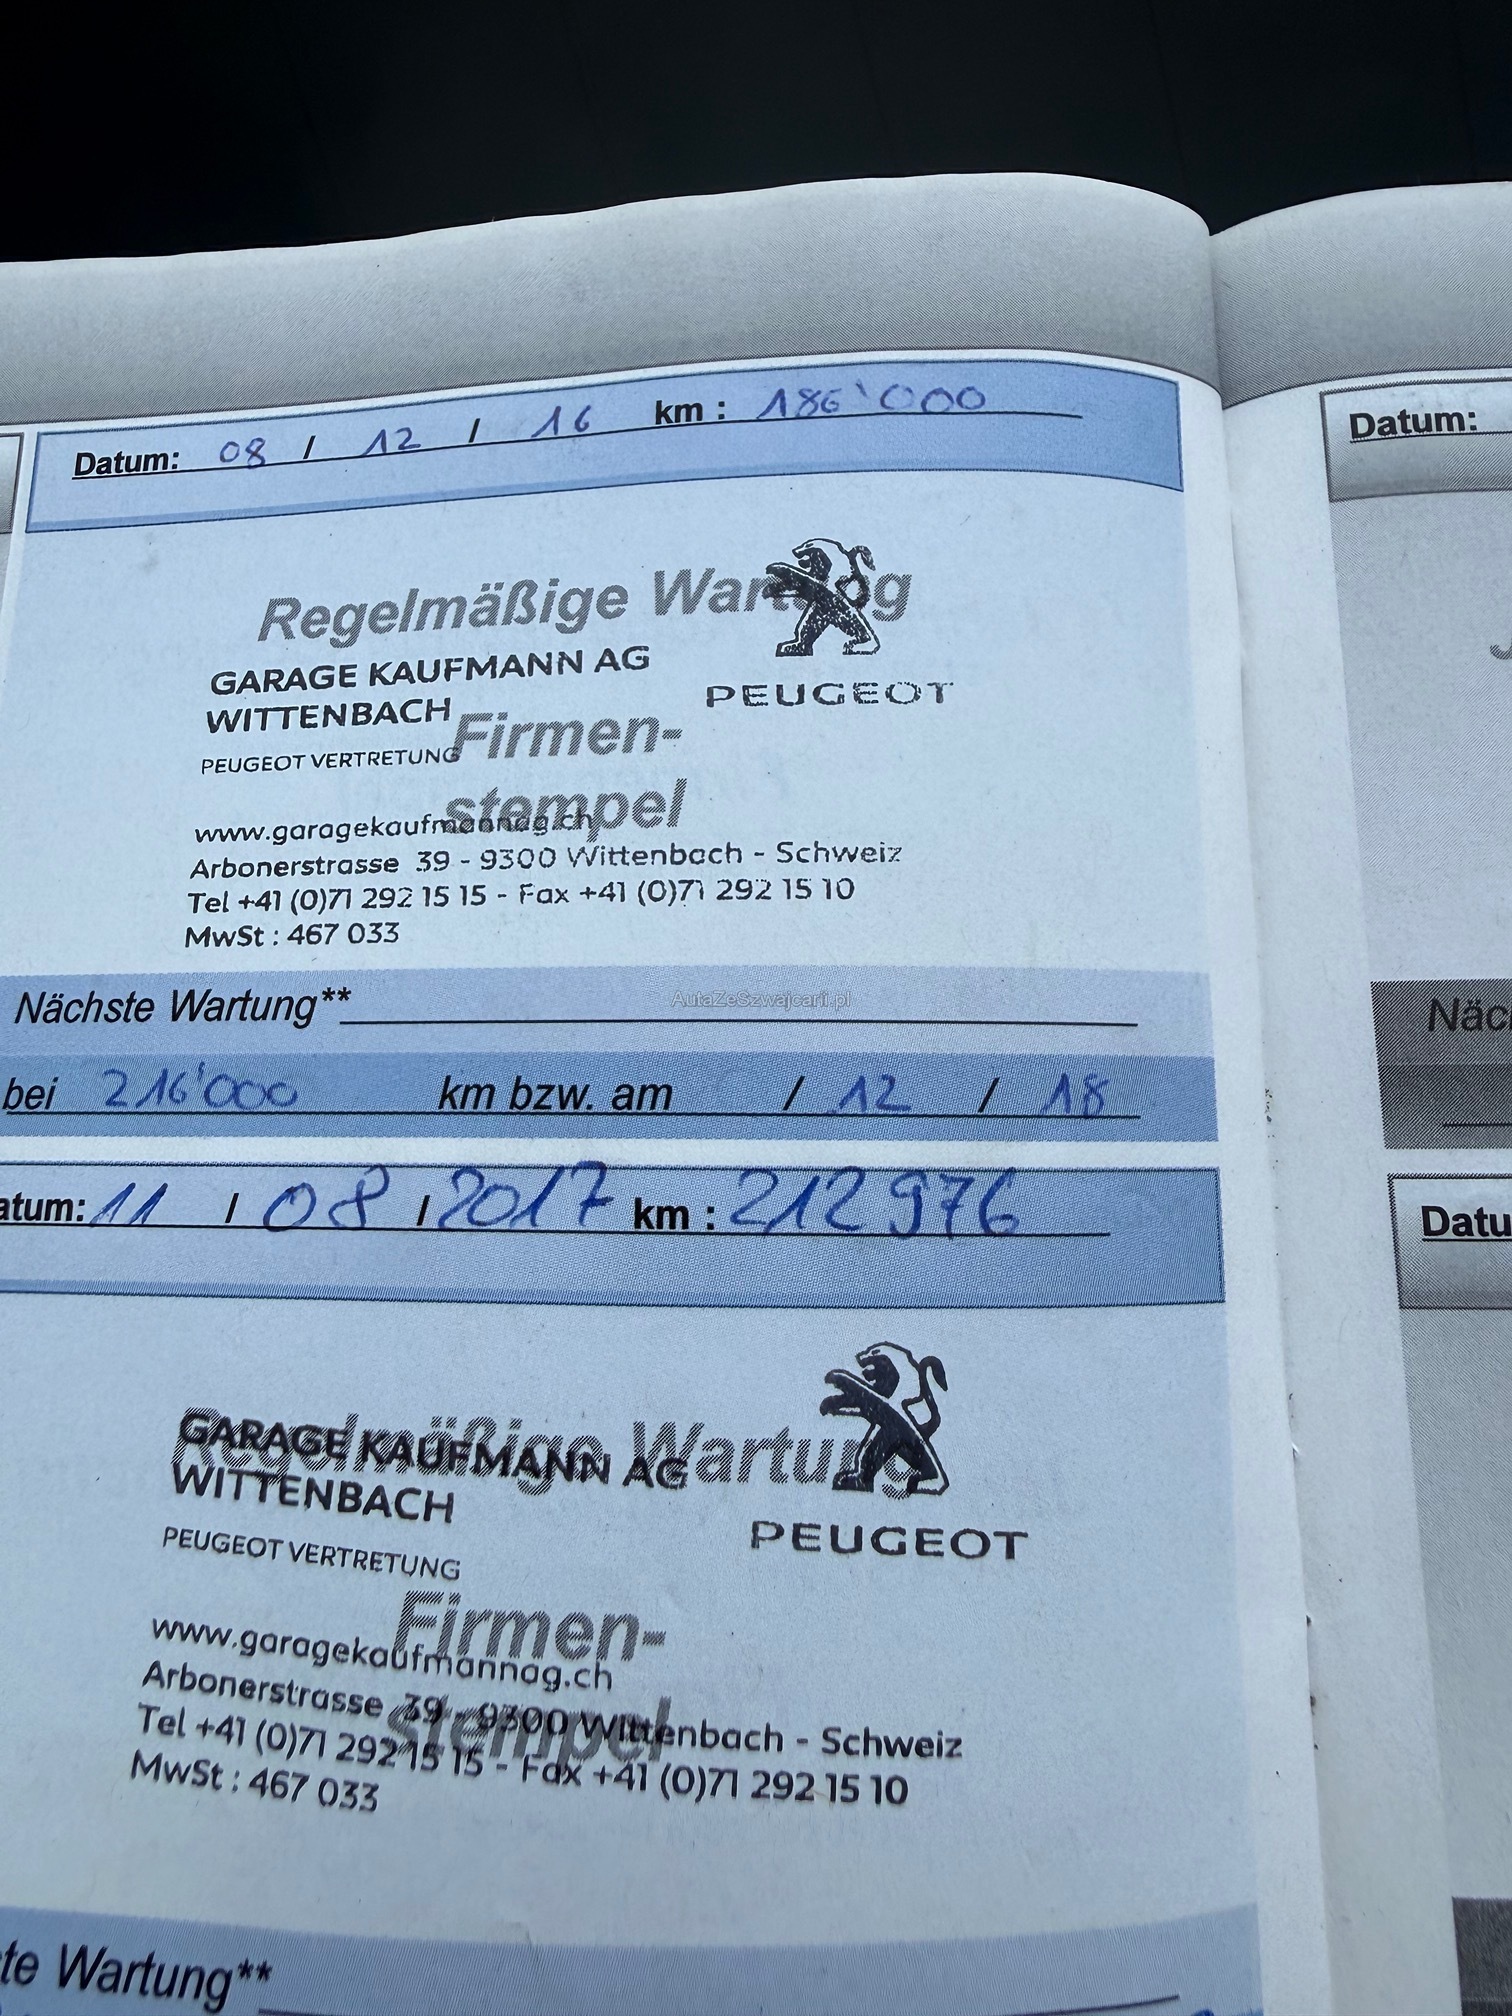 Datum: 08 / 12 / 16 km : 186'000
Regelmäßige Wartung
GARAGE KAUFMANN AG
WITTENBACH
PEUGEOT
PEUGEOT VERTRETUNG
Firmen-
stempel
www.garagekaufmannag.ch
Arbonerstrasse 39 - 9300 Wittenbach - Schweiz
Tel +41 (0)71 292 15 15 - Fax +41 (0)71 292 15 10
MwSt : 467 033
Nächste Wartung**
AutaZeSzwajcarii.pl
bei 216'000 km bzw. am / 12 / 18
atum: 11 / 08 / 2017 km : 212 976
Regelmäßige Wartung
GARAGE KAUFMANN AG
WITTENBACH
PEUGEOT
PEUGEOT VERTRETUNG
Firmen-
stempel
www.garagekaufmannag.ch
Arbonerstrasse 39 - 9300 Wittenbach - Schweiz
Tel +41 (0)71 292 15 15 - Fax +41 (0)71 292 15 10
MwSt : 467 033
te Wartung**
Datum:
Näc
Datu